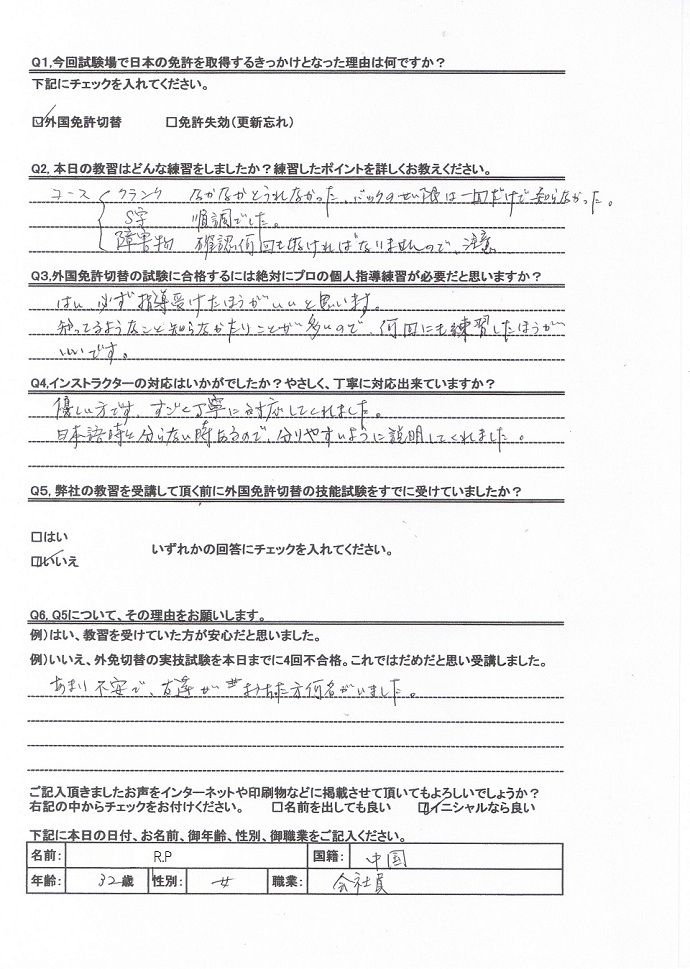 Q1,今回試験場で日本の免許を取得するきっかけとなった理由は何ですか？
下記にチェックを入れてください。
☑外国免許切替 □免許失効(更新忘れ)
Q2, 本日の教習はどんな練習をしましたか？練習したポイントを詳しくお教えください。
コース クランク なかなかとうれなかった、バックのせい限は一回だけで知らなかった。
S字 順調でした。
障害物 確認何回もなければなりませんので、注意
Q3,外国免許切替の試験に合格するには絶対にプロの個人指導練習が必要だと思いますか？
はい 必ず指導受けたほうがいいと思います。
知ってるようなこと知らなかたりことが多いので、何回にも練習したほうが
いいです。
Q4,インストラクターの対応はいかがでしたか？やさしく、丁寧に対応出来ていますか？
優しい方です、すごく丁寧に対応してくれました。
日本語時々分らない時あるので、分りやすいように説明してくれました。
Q5, 弊社の教習を受講して頂く前に外国免許切替の技能試験をすでに受けていましたか？
□はい
いずれかの回答にチェックを入れてください。
☑いいえ
Q6, Q5について、その理由をお願いします。
例)はい、教習を受けていた方が安心だと思いました。
例)いいえ、外免切替の実技試験を本日までに4回不合格。これではだめだと思い受講しました。
あまり不安で、友達が おちた方何名がいました。
ご記入頂きましたお声をインターネットや印刷物などに掲載させて頂いてもよろしいでしょうか？
右記の中からチェックをお付けください。 □名前を出しても良い ☑イニシャルなら良い
下記に本日の日付、お名前、御年齢、性別、御職業をご記入ください。
名前: R.P 国籍: 中国
年齢: 32歳 性別: 女 職業: 会社員